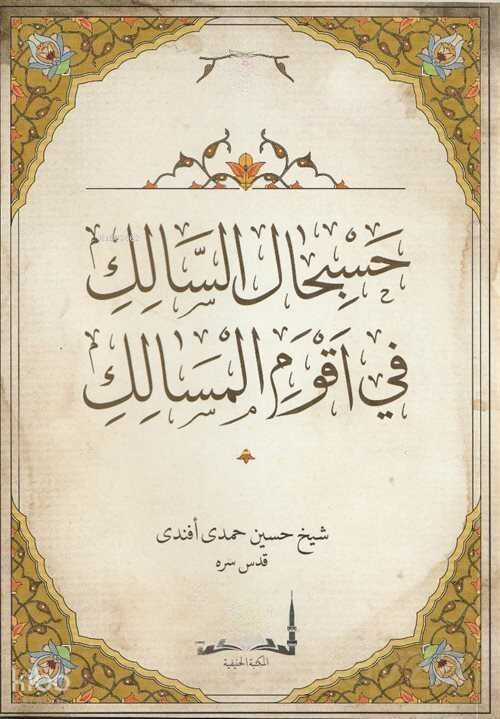 حَسْبِحَال السَّالِكِ
فِي أَقْوَمِ الْمَسَالِكِ
شيخ حسين حمدى أفندى
قدس سره
المكتبة الحنيفية